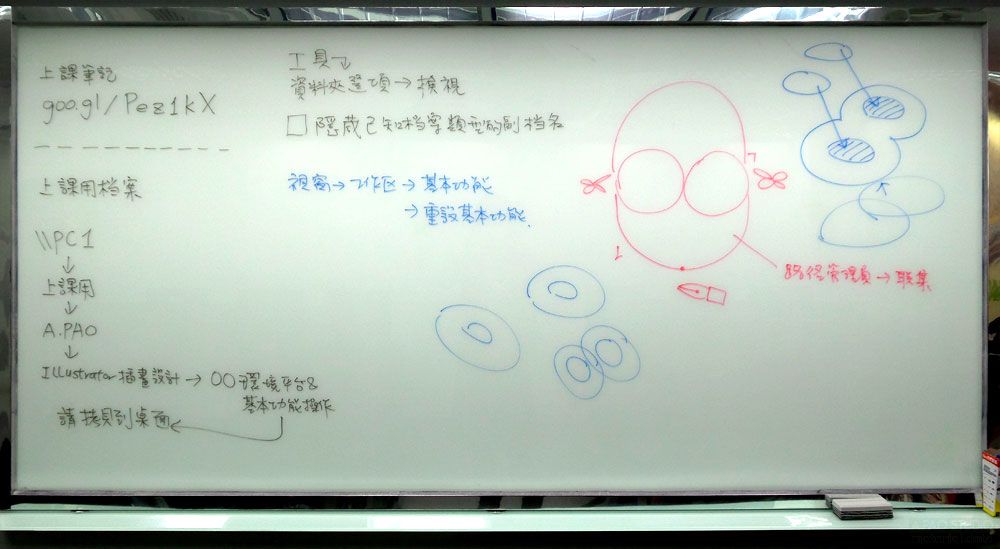 上課筆記
goo.gl/Pez1kX
上課用档案
\\PC1
↓
上課用
↓
A.PAO
↓
Illustrator插畫設計→〇〇環境平台&
基本功能操作
請拷貝到桌面
工具↘
資料夾選項→檢視
□隱藏已知档案類型的副档名
視窗→工作区→基本功能
→重設基本功能
路径管理員→聯集